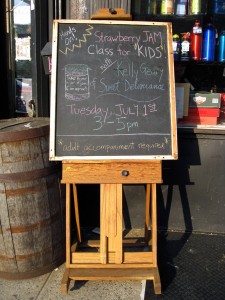 Hands On!
Strawberry JAM
Class for "KIDS"
with
Kelly Geary
& Sweet Deliverance
Tuesday, JULY 1st
3-5pm
*adult accompaniment required*